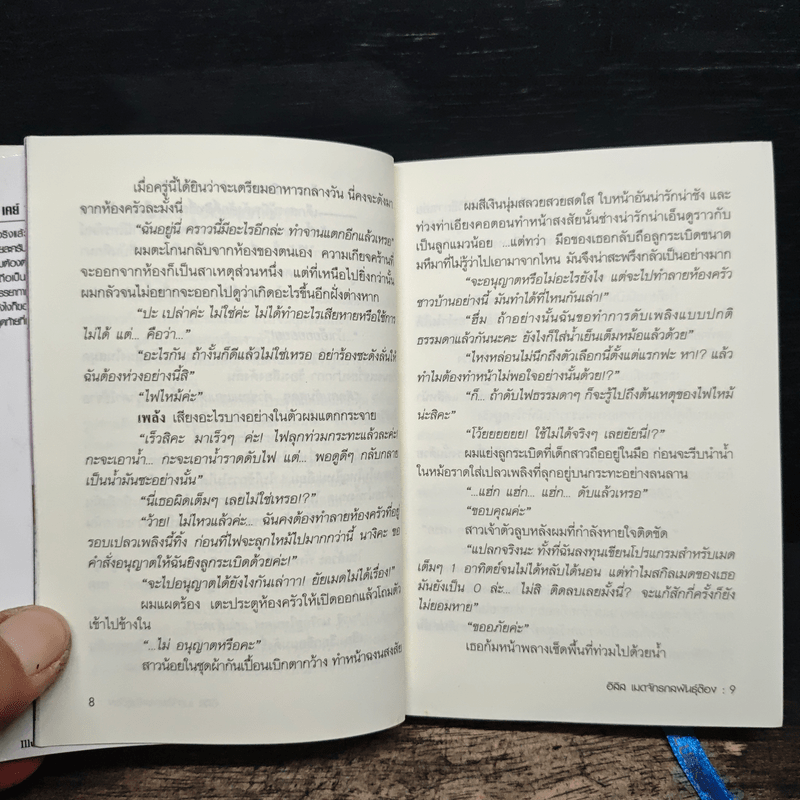 เคย์
เมื่อครู่นี้ได้ยินว่าจะเตรียมอาหารกลางวัน นี่คงจะดังมา
จากห้องครัวละมั้งนี่
“ฉันอยู่นี่ คราวนี้มีอะไรอีกล่ะ ทำจานแตกอีกแล้วเหรอ”
ผมตะโกนกลับจากห้องของตนเอง ความเกียจคร้านที่
จะออกจากห้องก็เป็นสาเหตุส่วนหนึ่ง แต่ที่เหนือไปยิ่งกว่านั้น
ผมกลัวจนไม่อยากจะออกไปดูว่าเกิดอะไรขึ้นอีกฝั่งต่างหาก
“ปะ เปล่าค่ะ ไม่ใช่ค่ะ ไม่ได้ทำอะไรเสียหายหรือใช้การ
ไม่ได้ แต่... คือว่า...”
“อะไรกัน ถ้างั้นก็ดีแล้วไม่ใช่เหรอ อย่าร้องซะดังลั่นให้
ฉันต้องห่วงอย่างนี้สิ”
“ไฟไหม้ค่ะ”
เพล้ง เสียงอะไรบางอย่างในตัวผมแตกกระจาย
“เร็วสิคะ มาเร็วๆ ค่ะ! ไฟลุกท่วมกระทะแล้วล่ะค่ะ!
กะจะเอาน้ำ... กะจะเอาน้ำราดดับไฟ แต่... พอดูดีๆ กลับกลาย
เป็นน้ำมันซะอย่างนั้น”
“นี่เธอผิดเต็มๆ เลยไม่ใช่เหรอ!?”
“ว้าย! ไม่ไหวแล้วค่ะ... ฉันคงต้องทำลายห้องครัวที่อยู่
รอบเปลวเพลิงนี้ทิ้ง ก่อนที่ไฟจะลุกไหม้ไปมากกว่านี้ นางิคะ ขอ
คำสั่งอนุญาตให้ฉันยิงลูกระเบิดด้วยค่ะ!”
“จะไปอนุญาตได้ยังไงกันเล่าาา! ยัยเมดไม่ได้เรื่อง!”
ผมแผดร้อง เตะประตูห้องครัวให้เปิดออกแล้วโถมตัว
เข้าไปข้างใน
“...ไม่ อนุญาตหรือคะ”
สาวน้อยในชุดผ้ากันเปื้อนเบิกตากว้าง ทำหน้าฉงนสงสัย
8
ผมสีเงินนุ่มสลวยสวยสดใส ใบหน้าอันน่ารักน่าชัง และ
ท่วงท่าเอียงคอตอนทำหน้าสงสัยนั้นช่างน่ารักน่าเอ็นดูราวกับ
เป็นลูกแมวน้อย ...แต่ทว่า มือของเธอกลับถือลูกระเบิดขนาด
มหึมาที่ไม่รู้ว่าไปเอามาจากไหน มันจึงน่าสะพรึงกลัวเป็นอย่างมาก
“จะอนุญาตหรือไม่อะไรยังไง แต่จะไปทำลายห้องครัว
ชาวบ้านอย่างนี้ มันทำได้ที่ไหนกันเล่า!”
“ฮึ่ม ถ้าอย่างนั้นฉันขอทำการดับเพลิงแบบปกติ
ธรรมดาแล้วกันนะคะ ยังไงก็ใส่น้ำเย็นเต็มหม้อแล้วด้วย”
“ไหงหล่อนไม่นึกถึงตัวเลือกนี้ตั้งแต่แรกฟะ ทา!? แล้ว
ทำไมต้องทำหน้าไม่พอใจอย่างนั้นด้วย!?”
“ก็... ถ้าดับไฟธรรมดาๆ ก็จะรู้ไปถึงต้นเหตุของไฟไหม้
น่ะสิคะ”
“โว้ยยยยยย! ใช้ไม่ได้จริงๆ เลยยัยนี่!?”
ผมแย่งลูกระเบิดที่เด็กสาวถืออยู่ในมือ ก่อนจะรีบนำน้ำ
ในหม้อราดใส่เปลวเพลิงที่ลุกอยู่บนกระทะอย่างลนลาน
“...แฮ่ก แฮ่ก... แฮ่ก... ดับแล้วเหรอ”
“ขอบคุณค่ะ”
สาวเจ้าตัวลูบหลังผมที่กำลังหายใจติดขัด
“แปลกจริงนะ ทั้งที่ฉันลงทุนเขียนโปรแกรมสำหรับเมด
เต็มๆ 1 อาทิตย์จนไม่ได้หลับได้นอน แต่ทำไมสกิลเมดของเธอ
มันยังเป็น 0 ล่ะ... ไม่สิ ติดลบเลยมั้งนี่? จะแก้สักกี่ครั้งก็ยัง
ไม่ยอมหาย”
“ขออภัยค่ะ”
เธอก้มหน้าพลางเช็ดพื้นที่ท่วมไปด้วยน้ำ
อิลิส เมดจักรกลพันธุ์ต๊อง : 9